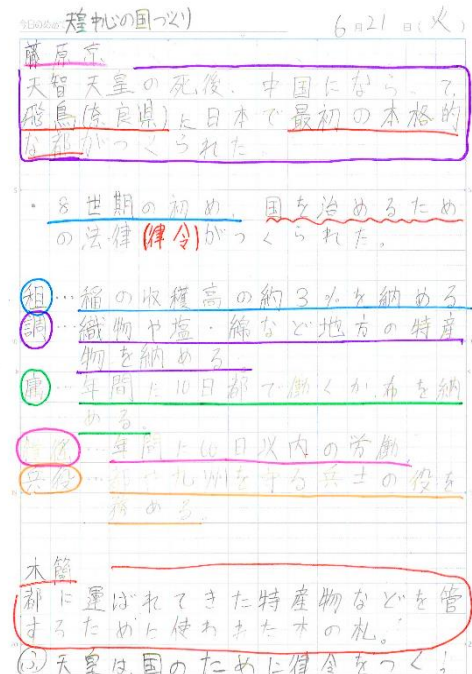 今日のめあて 天皇中心の国づくり 6月21日(火)
藤原京
天智天皇の死後、中国にならって、
飛鳥(奈良県)に日本で最初の本格的
な都がつくられた
・8世期の初め、国を治めるため
の法律(律令)がつくられた。
租…稲の収穫高の約3%を納める
調…織物や塩・綿など地方の特産
物を納める
庸…年間に10日都で働くか、布を納
める。
…年間に60日以内の労働
兵役…都や九州を守る兵士の役を
務める
木簡
都に運ばれてきた特産物などを管
するために使われた木の札。
天皇は国のために律令をつく